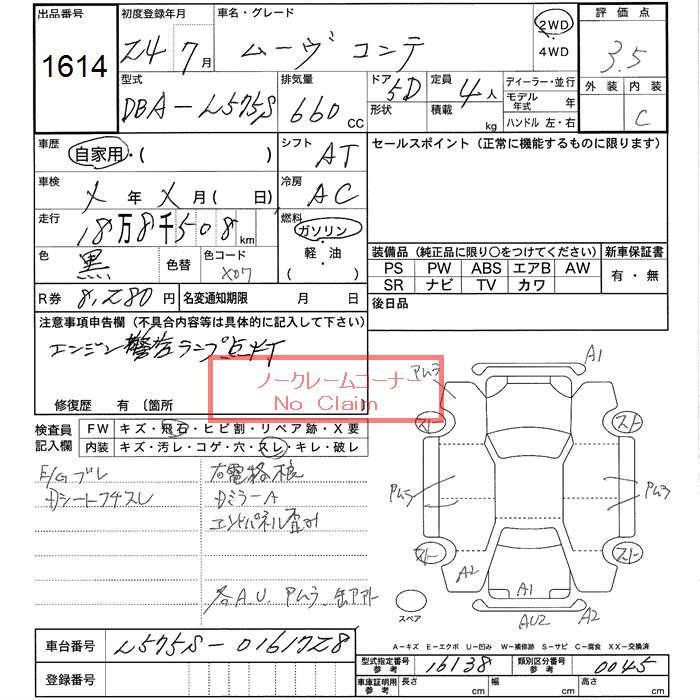 出品番号 初度登録年月 車名・グレード 2WD 評価点
1614 24 7月 ムーヴ コンテ 4WD 3.5
型式 排気量 ドア 5D 定員 4人 ディーラー・並行 外装 内装
DBA-L575S 660 CC 形状 積載 kg モデル年式 年 C
ハンドル 左・右
車歴 自家用・( ) シフト AT セールスポイント (正常に機能するものに限ります)
車検 X 年 X 月 ( 日) 冷房 AC
走行 18万8千508 km 燃料 ガソリン
軽・油
( )
色 黒 色替 色コード X07
装備品 (純正品に限り○をつけてください) 新車保証書
PS PW ABS エアB AW 有・無
SR ナビ TV カワ
R券 8,280円 名変通知期限 月 日 後日品
注意事項申告欄 (不具合内容等は具体的に記入して下さい)
エンジン警告ランプ点灯
ノークレームコーナー
No Claim
修復歴 有 〔箇所
検査員記入欄 FW キズ・飛石・ヒビ割・リペア跡・X要
内装 キズ・汚レ・コゲ・穴・スレ・キレ・破レ
E/Gブレ 右電格根
Dシートフチスレ DミラーA
エンドパネル歪み
各A.U.アムラ.
A1
アムラ
スト スト
アムラ アムラ
スト スト
A2
A1
AU2 A2
スペア
A-キズ E-エクボ U-凹み W-補修跡 S-サビ C-腐食 XX-交換済
車台番号 L575S-0161728
型式指定番号 参考 16138 類別区分番号 参考 0045
登録番号
車庫証明用 参考 長さ cm 幅 cm 高さ cm